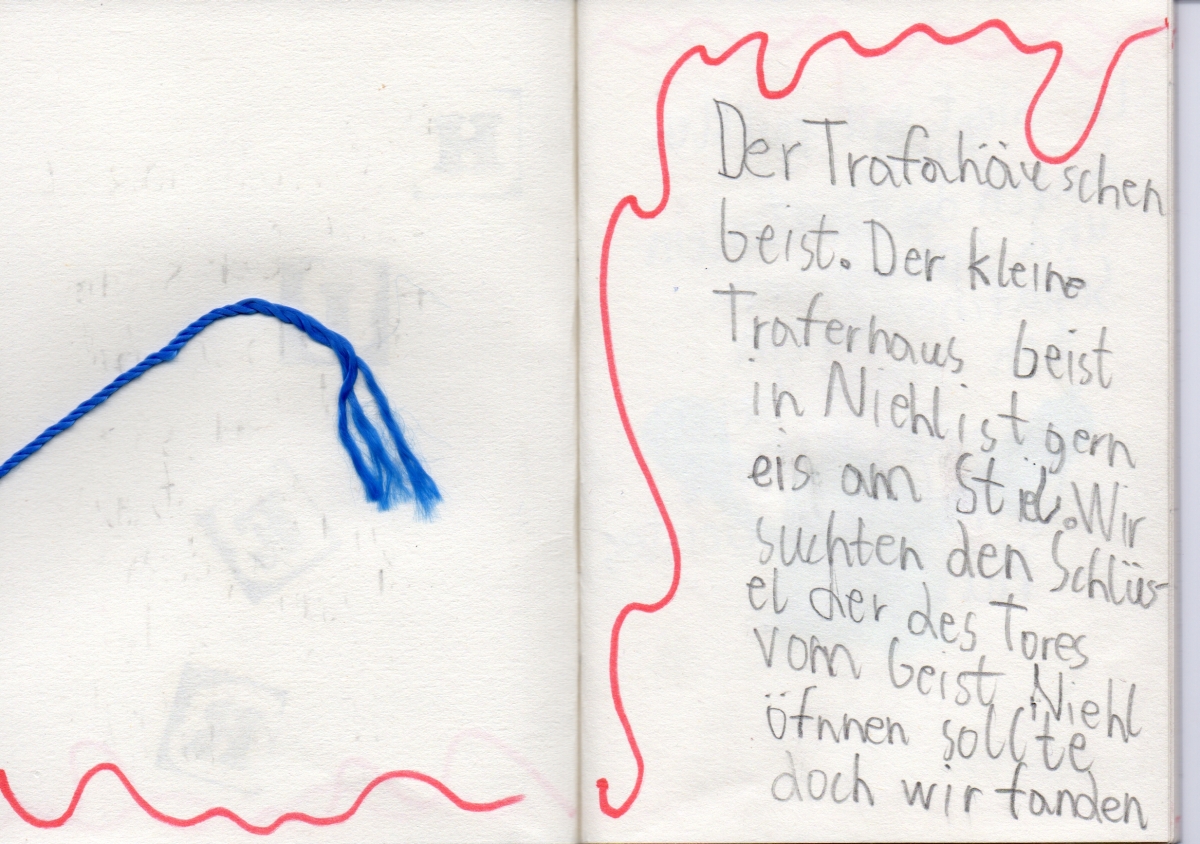 Der Trafahäuschen
Geist. Der kleine
Traferhaus Geist
in Niehl ist gern
eis am Stiel. Wir
suchten den Schlüs-
el der des Tores
vom Geist Niehl
öfnnen sollte
doch wir fanden